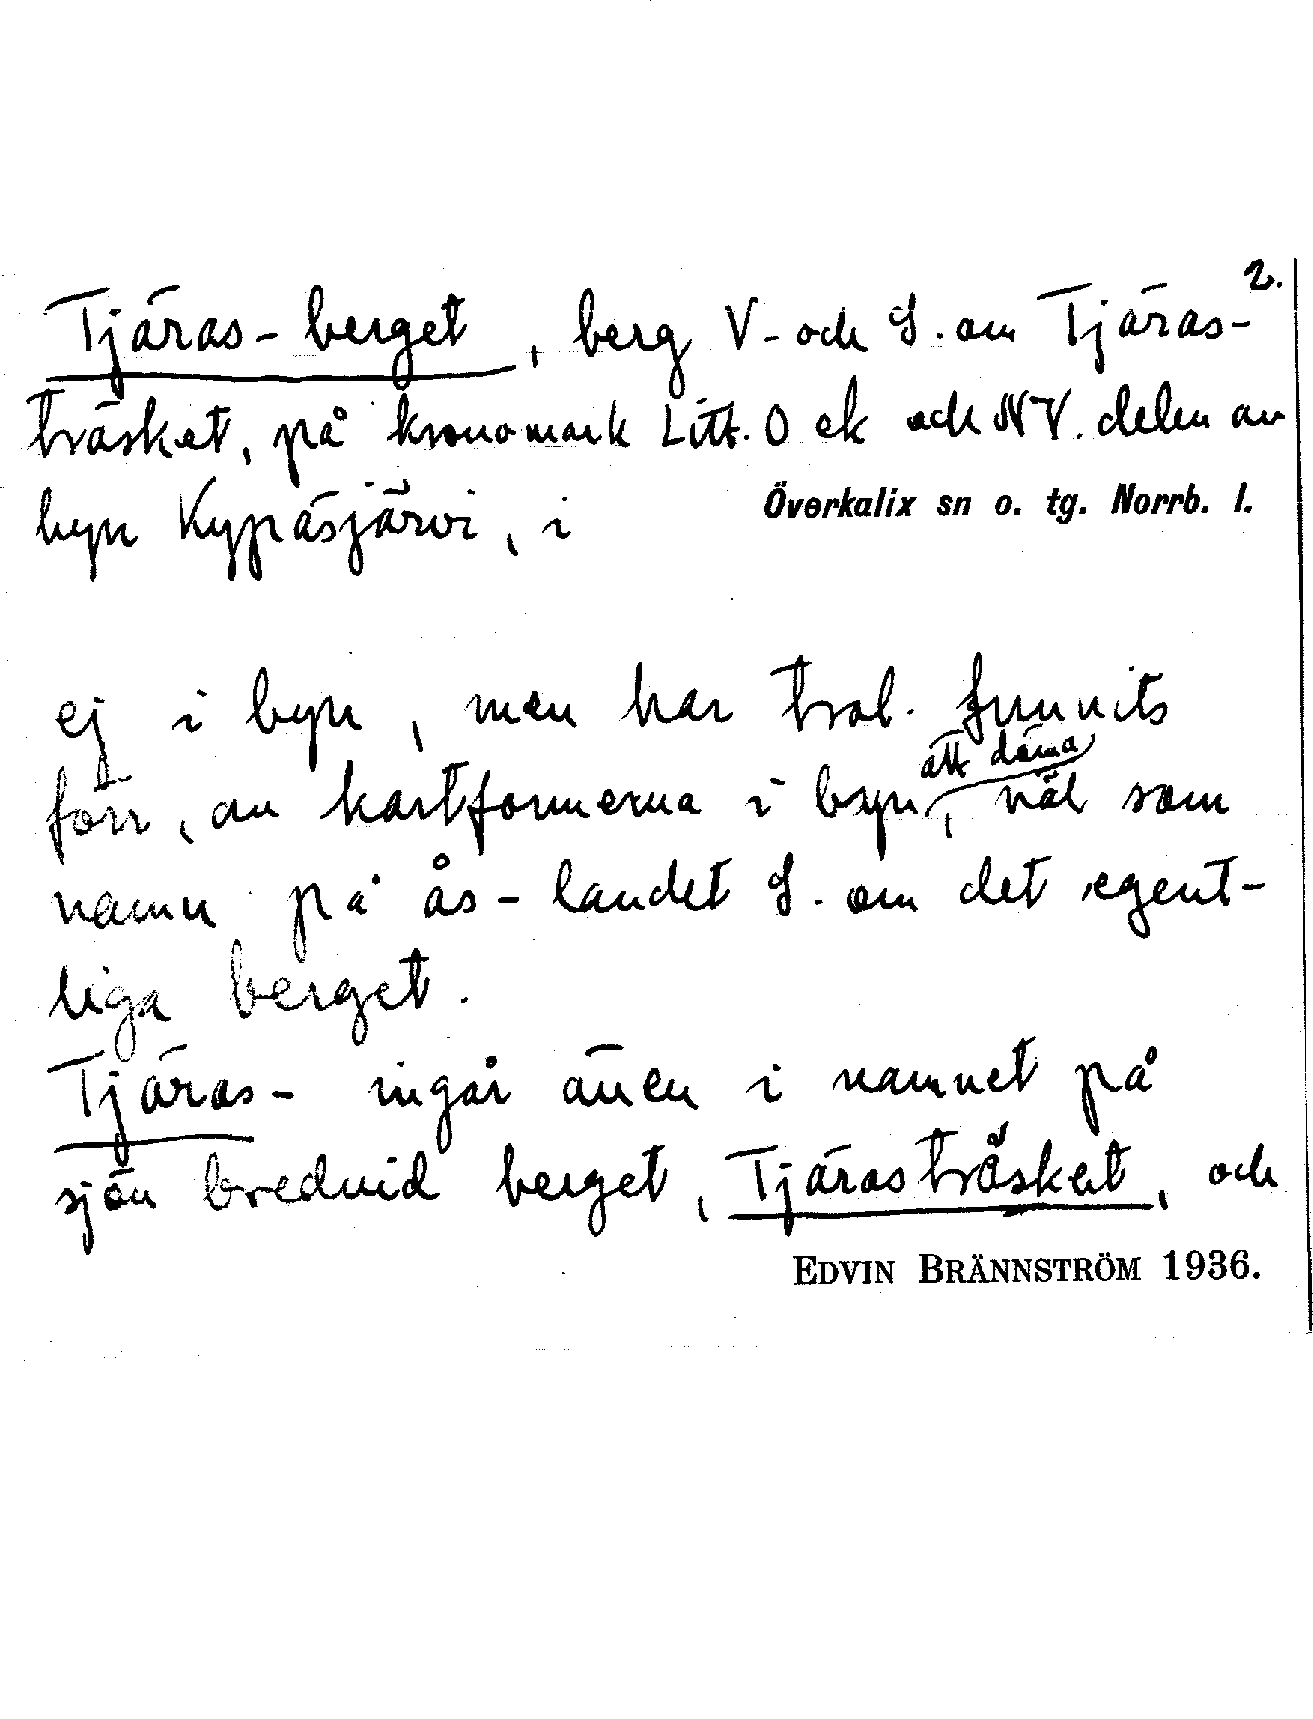 2.
Tjäras-berget, berg V- och S. om Tjäras-
träsket, på kronomark Litt. O ek och NV. delen av
byn Kypäsjärvi, i Överkalix sn o. tg. Norrb. l.
ej i byn, men har trol. funnits
förr, av kartformerna i byn att döma, väl som
namn på ås-landet S. om det egent-
liga berget.
Tjäras- ingår även i namnet på
sjön bredvid berget, Tjärasträsket, och
EDVIN BRÄNNSTRÖM 1936.